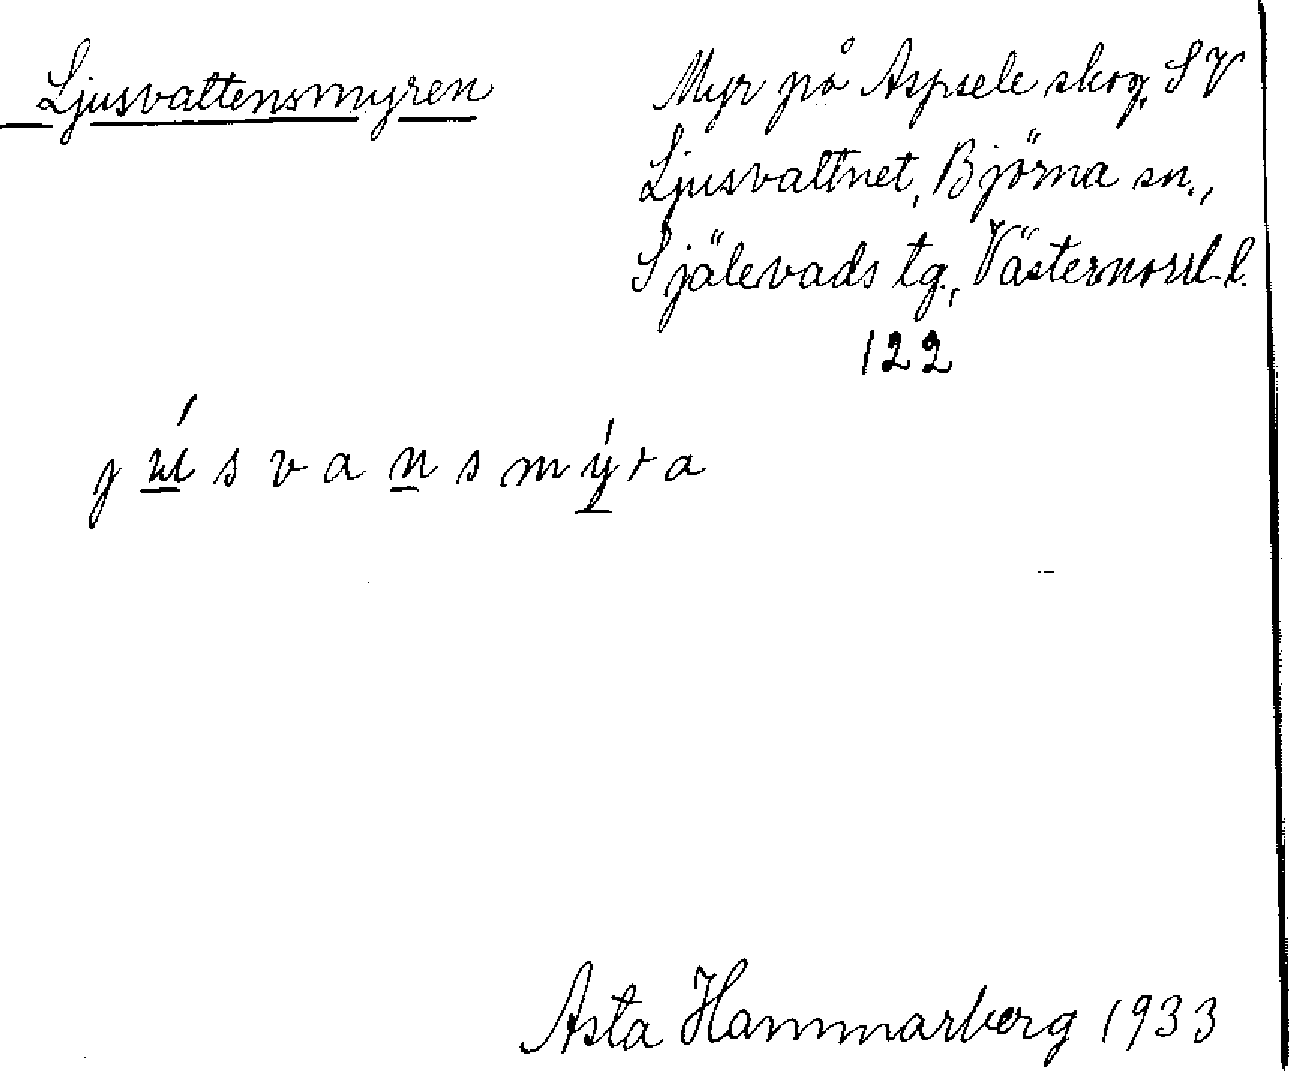 Ljusvattensmyren
Myr på Aspsele skog, SV
Ljusvattnet, Björna sn.,
Själevads tg., Västernorrl. l.
122
júsvansmýra
Asta Hammarberg 1933